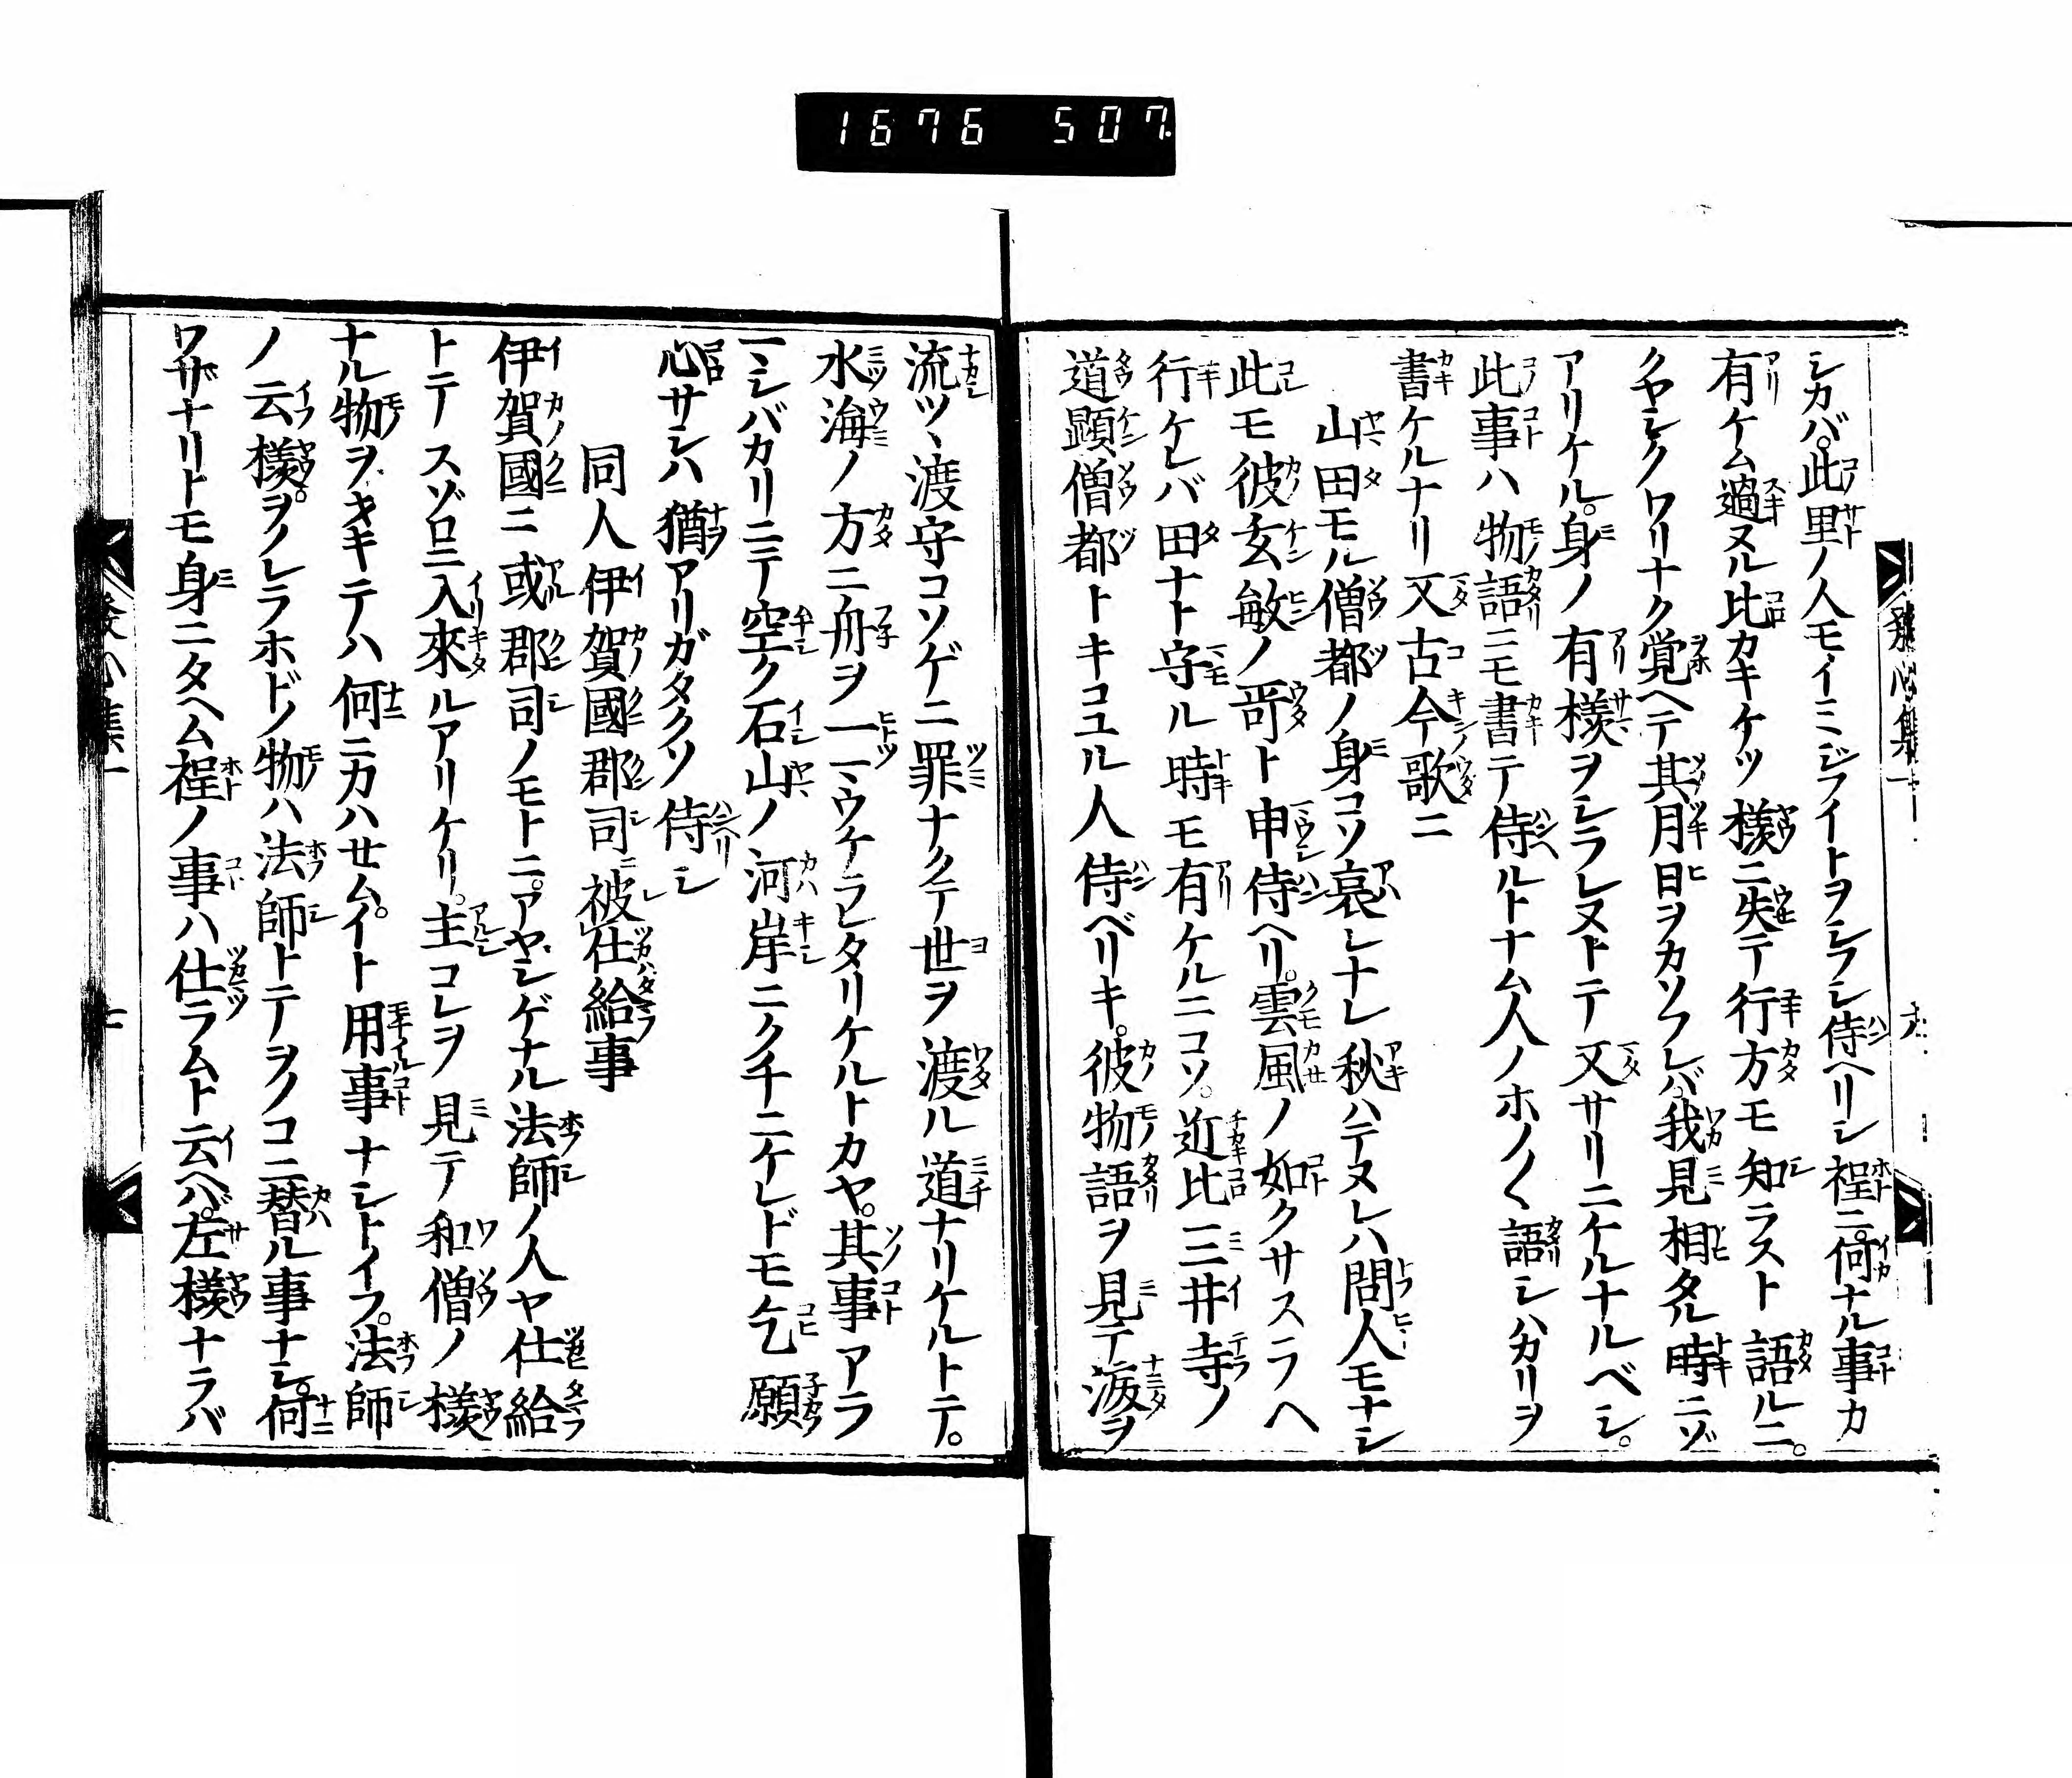 1676 507
シカバ。此里ノ人モイミジフイトヲシラシ侍ヘリシ程ニ。何ナル事カ
有ケム過ヌル比カキケツ様ニ失テ行方モ知ラスト語ルニ。
クヤシクワリナク覚ヘテ其月日ヲカソフレバ我見相タル時ニゾ
アリケル。身ノ有様ヲシラレヌトテ又サリニケルナルベシ。
此事ハ物語ニモ書テ侍ルトナム人ノホノ〱語シハカリヲ
書ケルナリ又古今歌ニ
山田モル僧都ノ身コソ哀レナレ秋ハテヌレハ問人モナシ
此モ彼玄敏ノ哥ト申侍ヘリ。雲風ノ如クサスラヘ
行ケレバ田ナト守ル時モ有ケルニコソ。近比三井寺ノ
道顕僧都トキコユル人侍ベリキ。彼物語ヲ見テ涙ヲ
流ツヽ渡守コソゲニ罪ナクテ世ヲ渡ル道ナリケルトテ。
水海ノ方ニ舟ヲ一ツヽウケラレタリケルトカヤ。其事アラ
マシバカリニテ空ク石山ノ河岸ニクチニケレドモ乞願
心サシハ猶アリガタクソ侍シ
同人伊賀國郡司ニ被仕給事
伊賀國ニ或郡司ノモトニ。アヤシゲナル法師ノ人ヤ仕給
トテスゾロニ入來ルアリケリ。主コレヲ見テ和僧ノ様
ナル物ヲヲキテハ何ニカハセム。イト用事ナシトイフ。法師
ノ云様。ヲノレラホドノ物ハ法師トテヲノコニ替ル事ナシ。何
ワザナリトモ身ニタヘム程ノ事ハ仕ラムト云ヘバ。左様ナラバ
發心集一
七